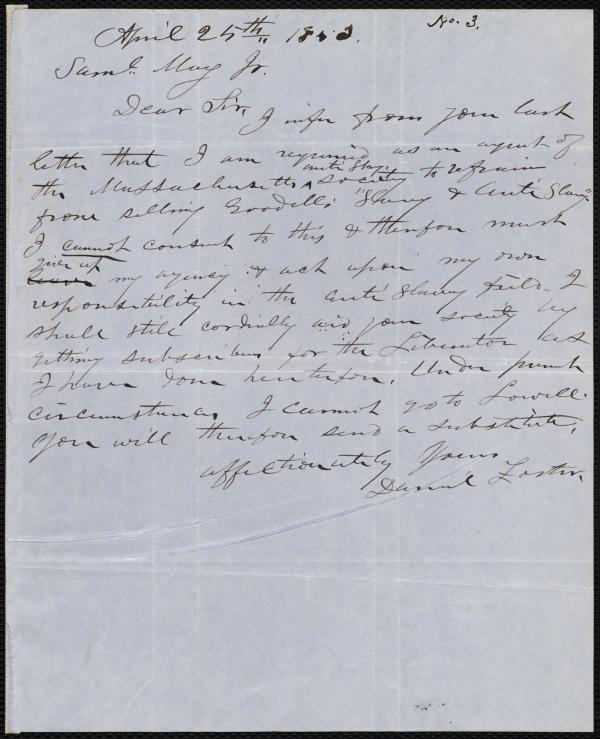 No. 3.
April 25th, 1853.
Saml. May Jr.
Dear Sir, I infer from your last
letter that I am required as an agent of
the Massachusetts anti Slav. society to refrain
from selling Goodell's "Slavery & Anti Slavy".
I cannot consent to this & therefore must
give up my agency & act upon my own
responsibility in the anti Slavery field. I
shall still cordially aid your society by
getting subscribers for the Liberator as
I have done heretofore. Under present
circumstances I cannot go to Lowell.
You will therefore send a substitute.
affectionately Yours
Daniel Foster.